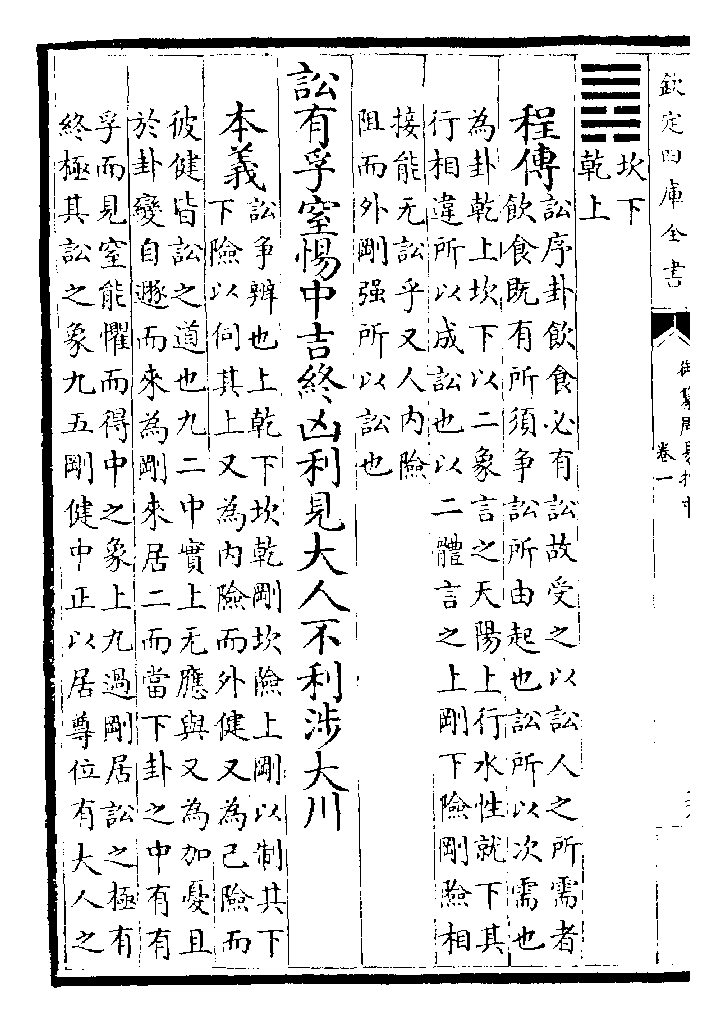 欽定四庫全書
御纂周易折中
卷一
坎下
乾上
程傳
訟序卦飲食必有訟故受之以訟人之所需者
飲食既有所須争訟所由起也訟所以次需也
為卦乾上坎下以二象言之天陽上行水性就下其
行相違所以成訟也以二體言之上剛下險剛險相
接能无訟乎又人内險
阻而外剛强所以訟也
訟有孚窒惕中吉終凶利見大人不利涉大川
本義
訟争辨也上乾下坎乾剛坎險上剛以制其下
下險以伺其上又為内險而外健又為己險而
彼健皆訟之道也九二中實上无應與又為加憂且
於卦變自遯而來為剛來居二而當下卦之中有有
孚而見窒能懼而得中之象上九過剛居訟之極有
終極其訟之象九五剛健中正以居尊位有大人之